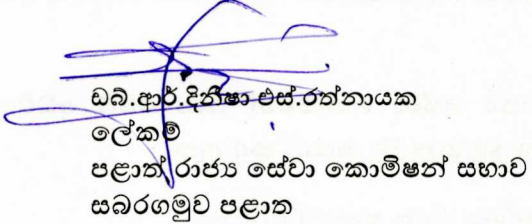 ඩබ්.ආර්.දිනීෂා එස්.රත්නායක
ලේකම්
පළාත් රාජ්‍ය සේවා කොමිෂන් සභාව
සබරගමුව පළාත